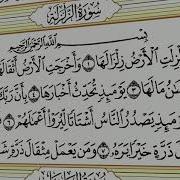 سُورَةُ الزَّلْزَلَةِ
بِسْمِ اللَّهِ الرَّحْمَٰنِ الرَّحِيمِ
الْأَرْضُ زِلْزَالَهَا ١ وَأَخْرَجَتِ الْأَرْضُ أَثْقَالَهَا
مَا لَهَا ٣ يَوْمَئِذٍ تُحَدِّثُ أَخْبَارَهَا ٤ بِأَنَّ رَبَّكَ
يَوْمَئِذٍ يَصْدُرُ النَّاسُ أَشْتَاتًا لِّيُرَوْا أَعْمَالَهُمْ ٦
ذَرَّةٍ خَيْرًا يَرَهُ ٧ وَمَن يَعْمَلْ مِثْقَالَ ذَرَّةٍ